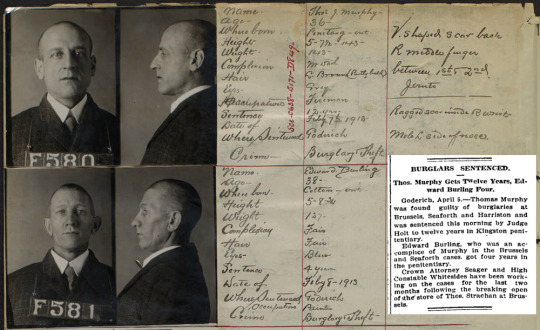 Name Thos. J. Murphy
Age 36
Where born
Height
Weight
Complexion
Hair
Eyes Grey
Occupation Fireman
Sentence 12 years
Date of Feby 8th 1913
Where Sentenced Goderich
Crime Burglary & Theft
V. shaped scar back
R middle finger
between 1st & 2nd
Joints
Ragged scar inside R
Mole L side of nose
F580
Name Edward Burling
Age 38
Where born
Height 5-8 3/4
Weight
Complexion Fair
Hair Fair
Eyes Blue
Sentence 4 years
Date of Feby 8-1913
Where Sentenced Goderich
Occupation
Crime Burglary & Theft
F581
BURGLARS SENTENCED.
Thos. Murphy Gets Twelve Years, Ed-
ward Burling Four.
Goderich, April 5.—Thomas Murphy
was found guilty of burglaries at
Brussels, Seaforth and Harriston and
was sentenced this morning by Judge
Holt to twelve years in Kingston peni-
tentiary.
Edward Burling, who was an ac-
complice of Murphy in the Brussels
and Seaforth cases, got four years in
the penitentiary.
Crown Attorney Seager and High
Constable Whitesides have been work-
ing on the cases for the last two
months following the breaking open
of the store of Thos. Strachan at Brus-
sels.